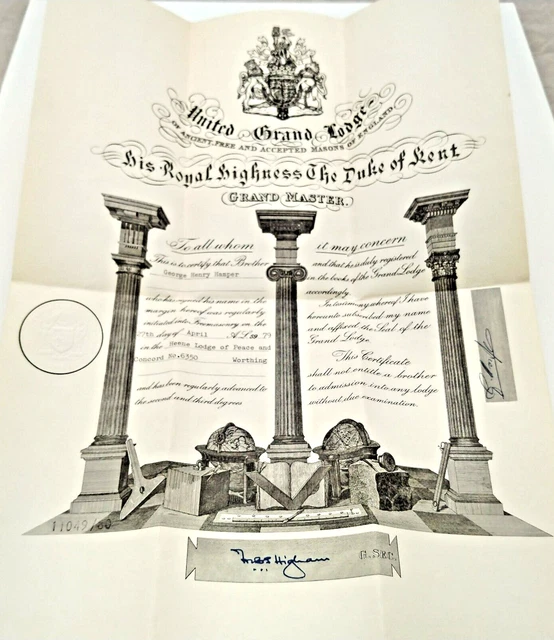 United Grand Lodge
OF ANCIENT, FREE AND ACCEPTED MASONS OF ENGLAND
His Royal Highness The Duke of Kent
GRAND MASTER.
To all whom
This is to certify that Brother
George Henry Hasper
who has signed his name in the
margin hereof was regularly
initiated into Freemasonry on the
27th day of April A.L. 5979
in the Heene Lodge of Peace and
Concord No.6350 Worthing
and has been regularly advanced to
the second and third degrees
it may concern
and that he is duly registered
in the books of the Grand Lodge
accordingly.
In testimony whereof I have
hereunto subscribed my name
and affixed the Seal of the
Grand Lodge.
This Certificate
shall not entitle a brother
to admission into any Lodge
without due examination.
11049/80
Higham
G. SEC.